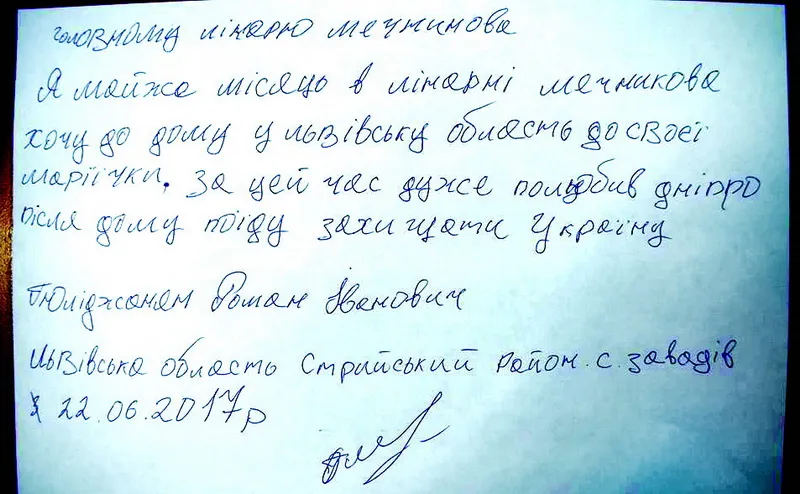 головному лікарю мечникова
Я майже місяць в лікарні мечникова
хочу до дому у львівську область до своєї
маріїчки. За цей час дуже полюбив дніпро
після дому поїду захищати Україну
Тюліджанян Роман Іванович
Львівська область Стрийський район. с. завадів
22.06.2017р